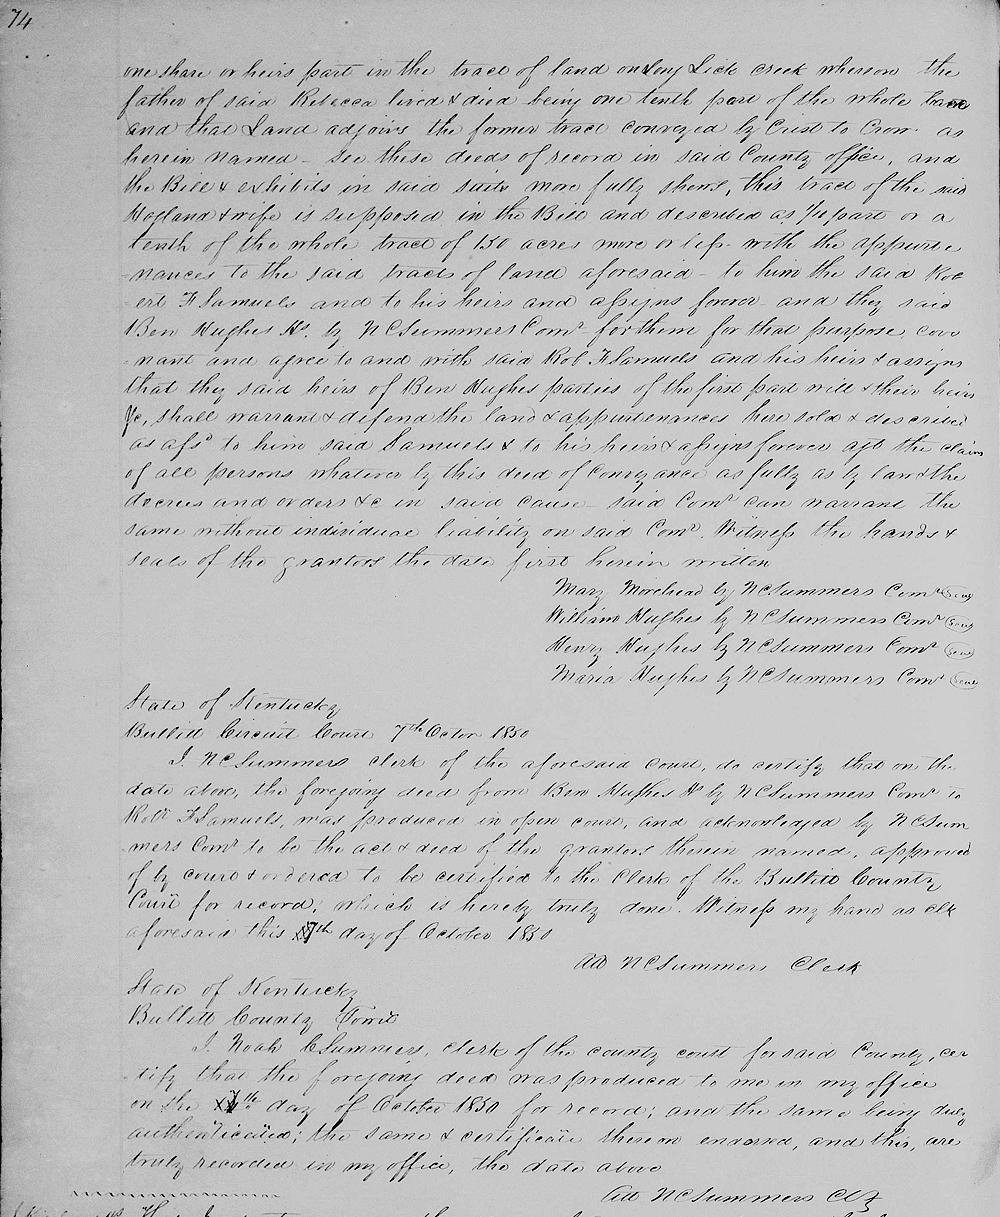 74
one share or heirs part in the tract of land on Long Lick creek whereon the
father of said Rebecca lived & died being one tenth part of the whole
and that Land adjoins the former tract conveyed by Crist to Crow as
herein named - See these deeds of record in said County office, and
the Bill & exhibits in said suits more fully shews, this tract of the said
Hogland & wife is supposed in the Bill and described as 1/10 part or a
tenth of the whole tract of 150 acres more or less - with the appurte
-nances to the said tracts of land aforesaid - to him the said Rob
-ert F Samuels and to his heirs and assigns forever - and they said
Ben Hughes Hs. by N C Summers Comr for them for that purpose, cove
-nant and agree to and with said Rob. F Samuels and his heirs & assigns
that they said heirs of Ben Hughes parties of the first part will & their heirs
&c, shall warrant & defend the land & appurtenances here sold & described
as afsd to him said Samuels & to his heirs & assigns forever agt the claim
of all persons whatever by this deed of Conveyance as fully as by law & the
decrees and orders &c in said cause - said Comr can warrant the
same without individual liability on said Comr. Witness the hands &
seals of the grantors the date first herein written
Mary Morehead by N C Summers Comr Seal
William Hughes by N C Summers Comr Seal
Henry Hughes by N C Summers Comr Seal
Maria Hughes by N C Summers Comr Seal
State of Kentucky
Bullitt Circuit Court 7th Octor 1850
I. N C Summers clerk of the aforesaid Court, do certify that on the
date above, the foregoing deed from Ben Hughes Hs by N C Summers Comr to
Robt F Samuels, was produced in open court, and acknowledged by N C Sum
-mers Comr to be the act & deed of the grantors therein named, approved
of by court & ordered to be certified to the Clerk of the Bullitt County
Court for record; which is hereby truly done. Witness my hand as clk
aforesaid this 7th day of October 1850
Att N C Summers Clerk
State of Kentucky
Bullitt County Towit
I. Noah C Summers, clerk of the county court for said County, cer
-tify that the foregoing deed was produced to me in my office
on the 7th day of October 1850 for record; and the same being duly
authenticated; the same & certificate thereon endorsed, and this, are
truly recorded in my office, the date above
Att N C Summers Clk